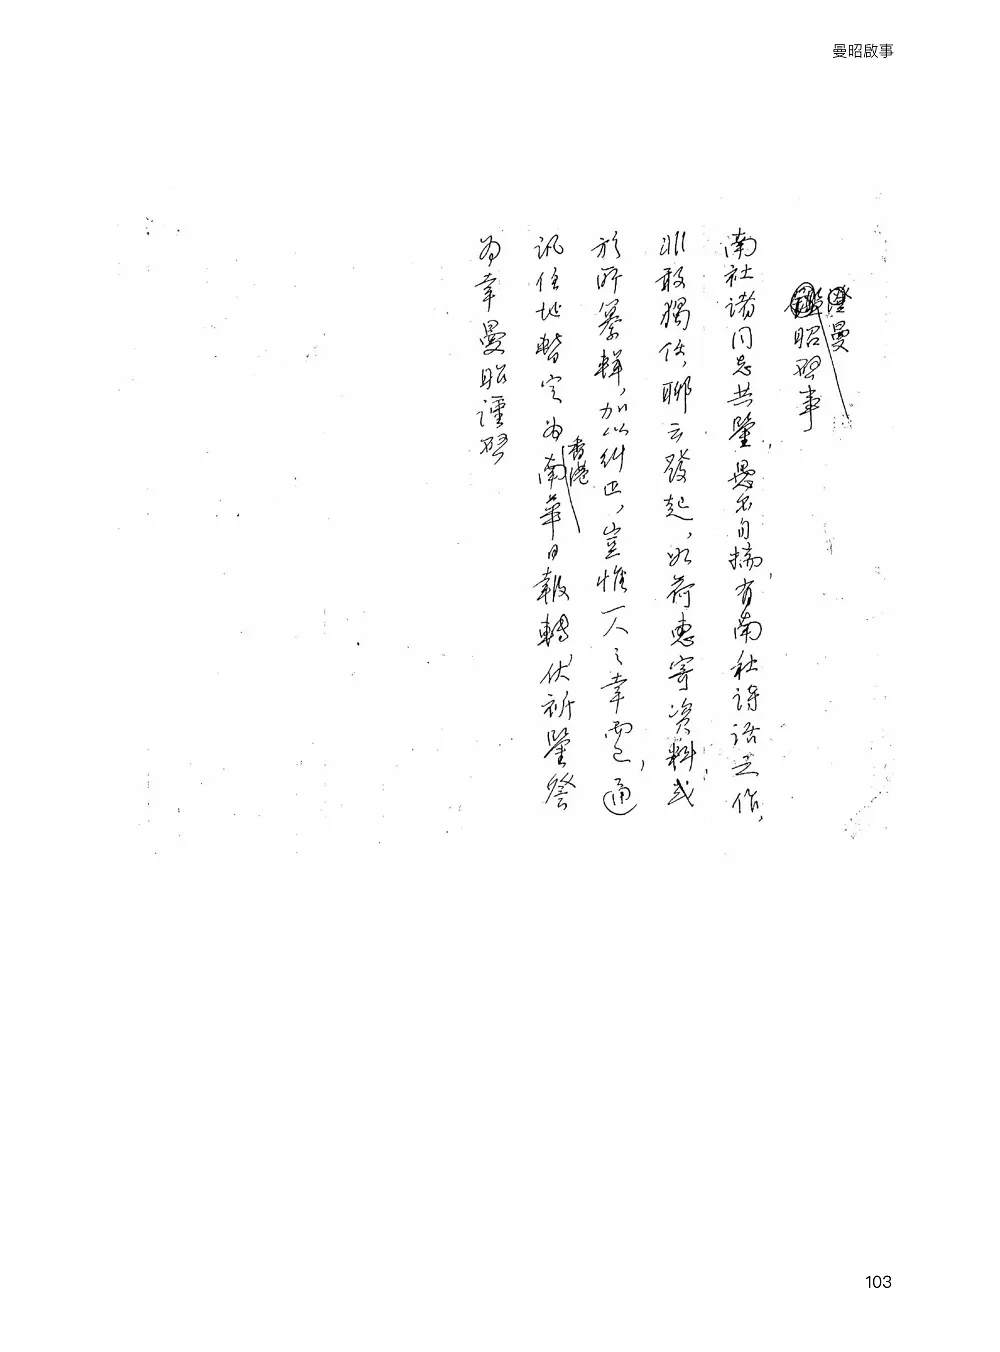 曼昭啟事
澄曼
昭啓事
南社諸同志共鑒，愚不自揣，有南社詩話之作，
非敢獨任，聊云發起，如荷惠寄資料，或
於所纂輯，加以糾正，豈惟一人之幸而已，通
訊住址暫定為香港南華日報轉，伏祈鑒詧
為幸曼昭謹啓
103